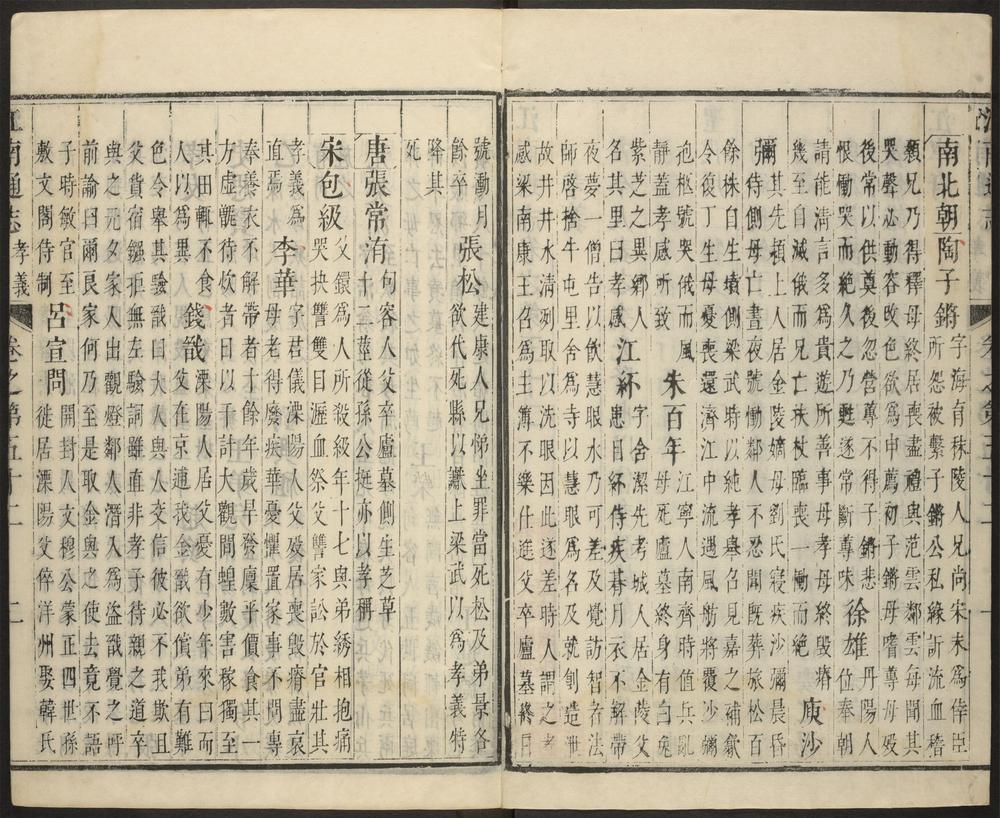 南北朝陶子鏘字海育秣陵人兄尚宋末為倖臣
所怨被繫子鏘公私緣訴流血稽
顙兄乃得釋母終居喪盡禮與范雲鄰雲每聞其
哭聲必動容改色欲為申薦初子鏘母嗜蓴母歿
後常以供奠後忽營蓴不得子鏘悲
恨慟哭而絕久之乃甦遂常斷蓴味 徐雄丹陽人位奉朝
請能清言多為貴遊所善事母孝母終毀瘠
幾至自滅俄而兄亡扶杖臨喪一慟而絕 庾沙
彌其先潁上人居金陵嫡母劉氏寢疾沙彌晨昏
侍側母亡晝夜號慟鄰人不忍聞旣葬旅松百
餘株自生墳側梁武時以純孝舉召見嘉之補歙
令復丁生母憂喪還濟江中流遇風舫將覆沙彌
抱柩號哭俄而風
靜蓋孝感所致 朱百年江寧人南齊時值兵亂
母死廬墓終身有白兔
紫芝之異鄉人
名其里曰孝感 江紑字含潔先考城人居金陵父
患目紑侍疾朞月衣不解帶
夜夢一僧告以飲慧眼水乃可差及覺訪智者法
師啓捨牛屯里舍為寺以慧眼為名及就創造泄
故井井水清冽取以洗眼因此遂差時人謂之孝
感梁南康王召為主簿不樂仕進父卒廬墓終日
號慟月
餘卒 張松建康人兄悌坐罪當死松及弟景各
欲代死縣以讞上梁武以為孝義特
降其
死
唐張常洧句容人父卒廬墓側生芝草
十二莖從孫公挺亦以孝稱
宋包級父鐶為人所殺級年十七與弟綉相抱痛
哭抉讐雙目瀝血祭父讐家訟於官壯其
孝義為
 李華字君儀溧陽人父歿居喪毀瘠盡哀
母老得廢疾華憂懼置家事不問專
奉養衣不解帶者十餘年歲旱發廩平價食其一
方虛甑待炊者日以千計大觀間蝗數害稼獨至
其田輒不食
人以為異 錢戩溧陽人居父憂有少年來曰而
父在京逋我金戩欲償弟有難
色令舉其驗戩曰大人與人交信彼必不我欺且
父貨宿鏹拒無左驗詞雖直非孝子待親之道卒
與之元夕家人出觀燈鄰人潛入為盜戩覺之呼
前諭曰爾良家何乃至是取金與之使去竟不語
子時敏官至
敷文閣侍制 呂宣問開封人文穆公蒙正四世孫
徙居溧陽父倅洋州娶韓氏
江南通志 孝義 卷之第五十二 二